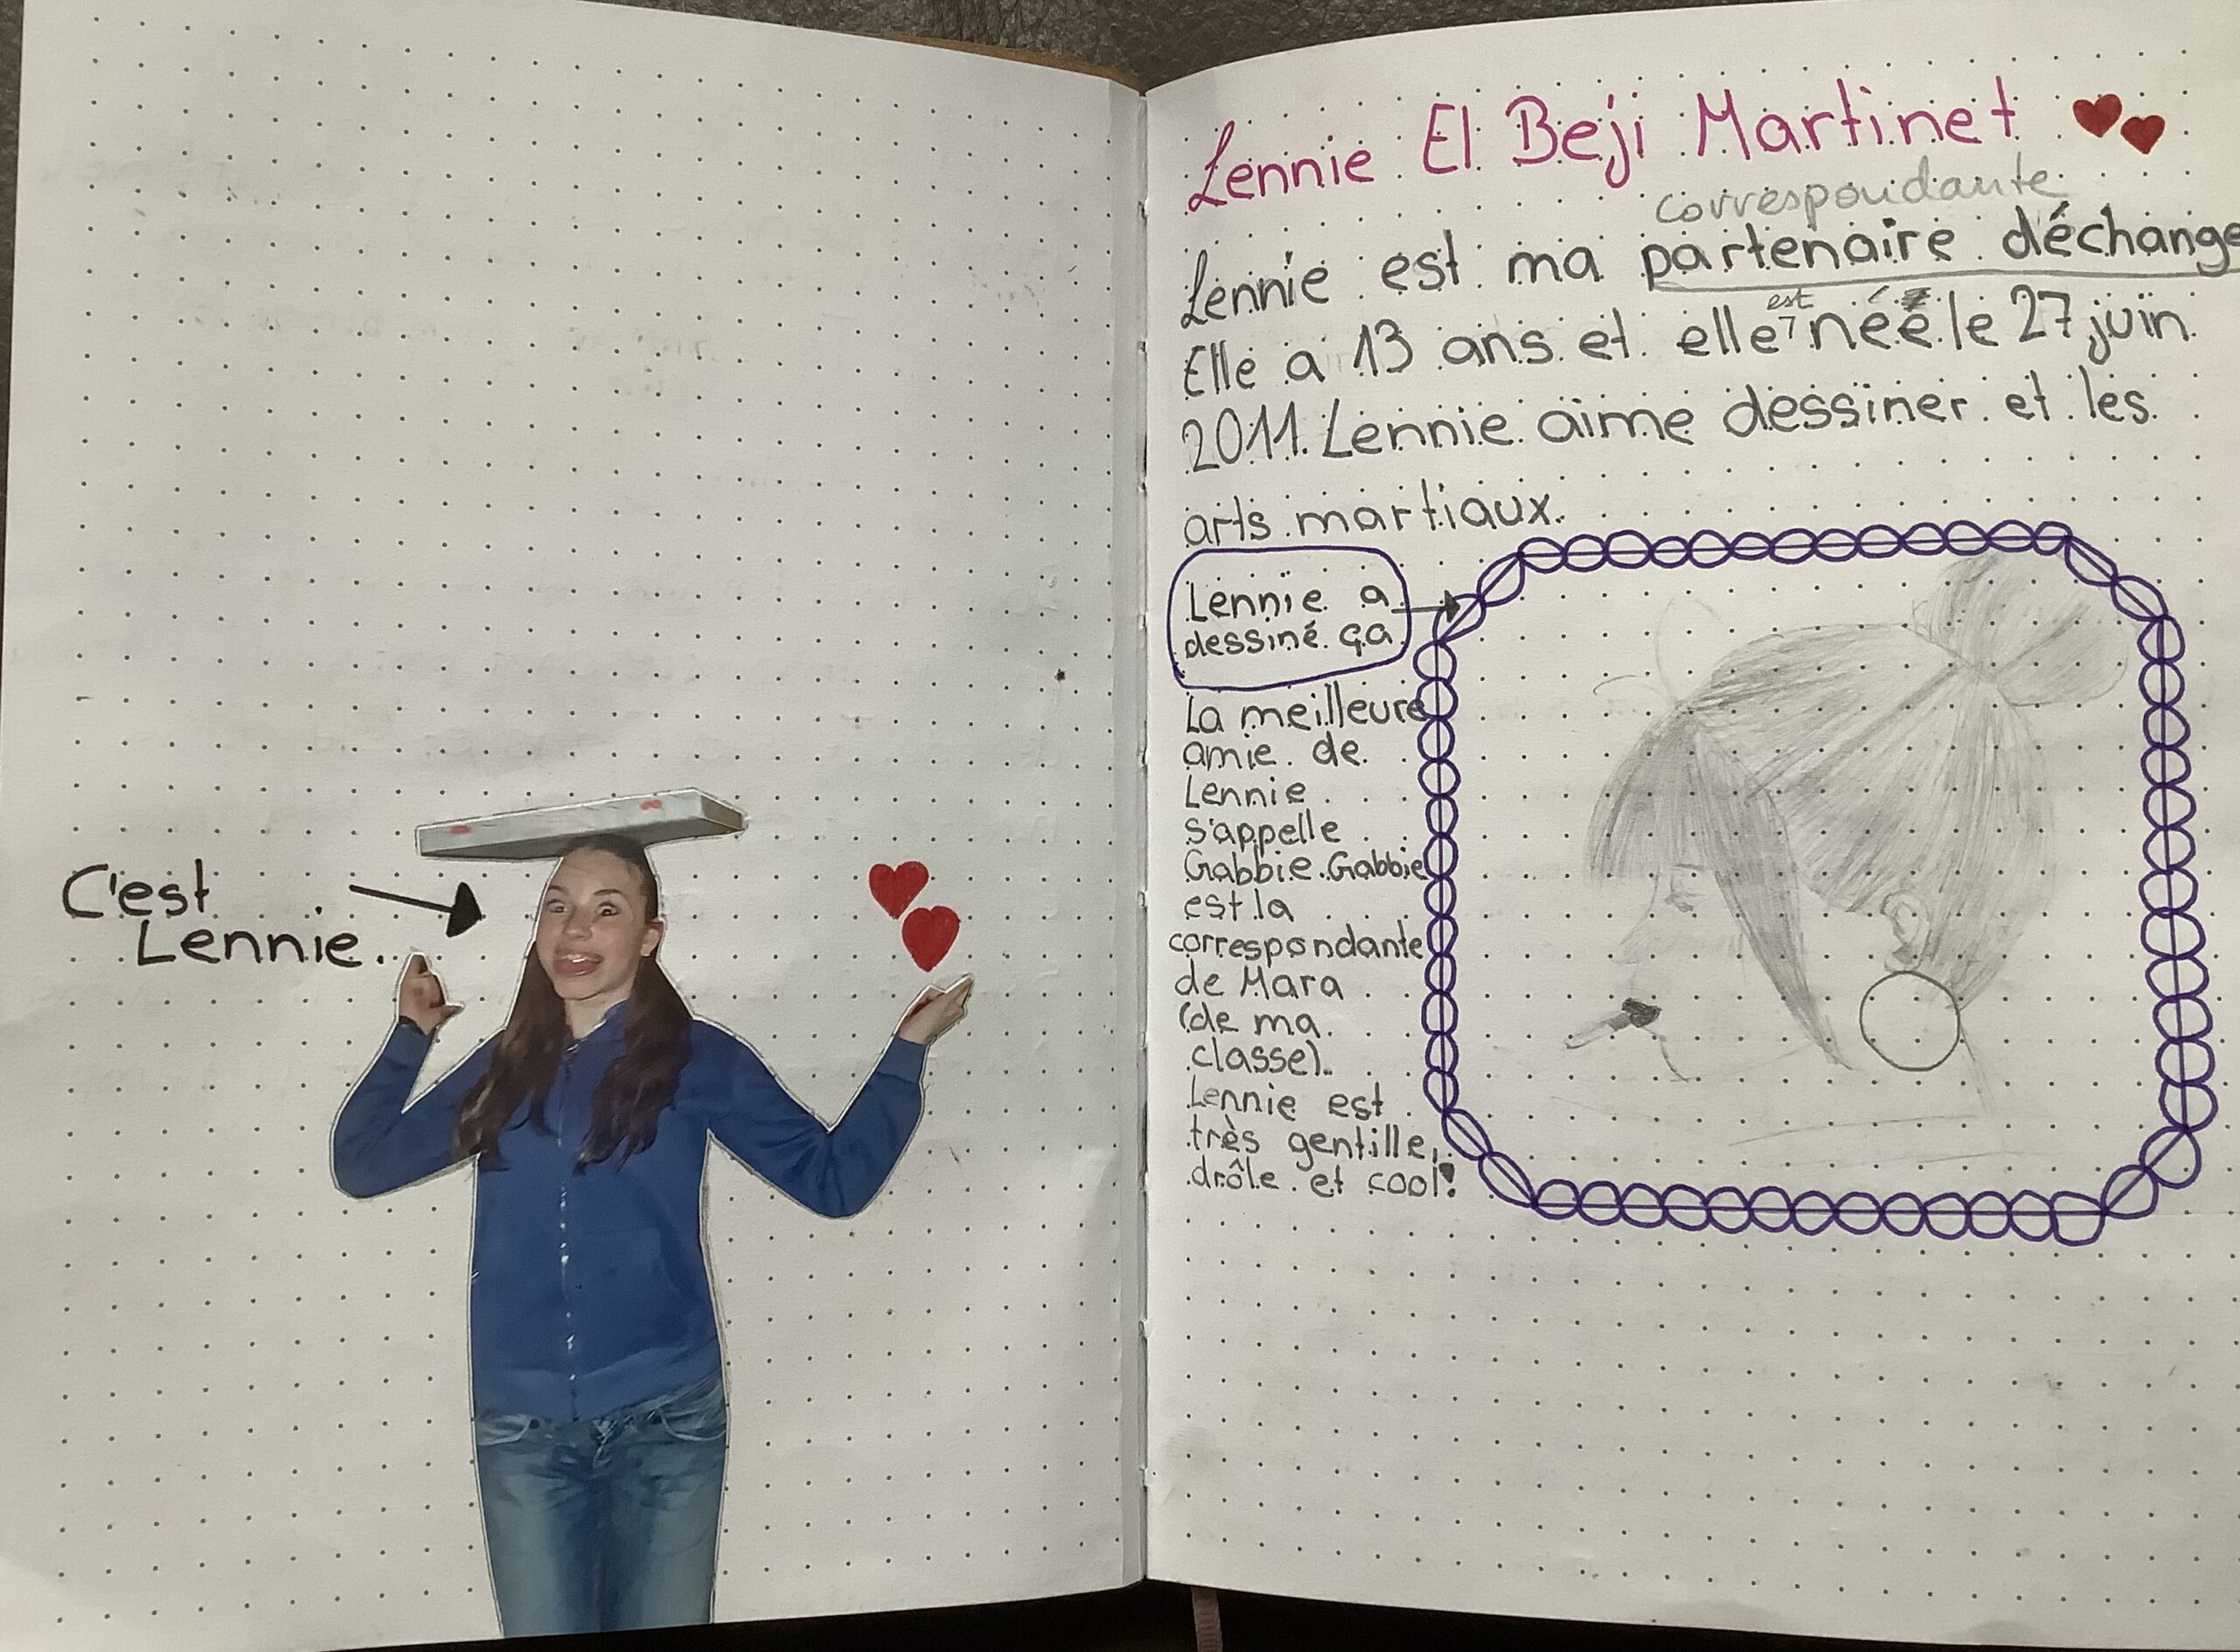 C'est
Lennie.
Lennie El Beji Martinet
correspondante
Lennie est ma partenaire déchange
est
Elle a 13 ans et elle née le 27 juin
2011. Lennie aime dessiner et les
arts martiaux.
Lennie a
dessiné ça
La meilleure
amie de
Lennie
s'appelle
Gabbie. Gabbie
est la
correspondante
de Mara
(de ma
classe).
Lennie est
très gentille,
drôle et cool!